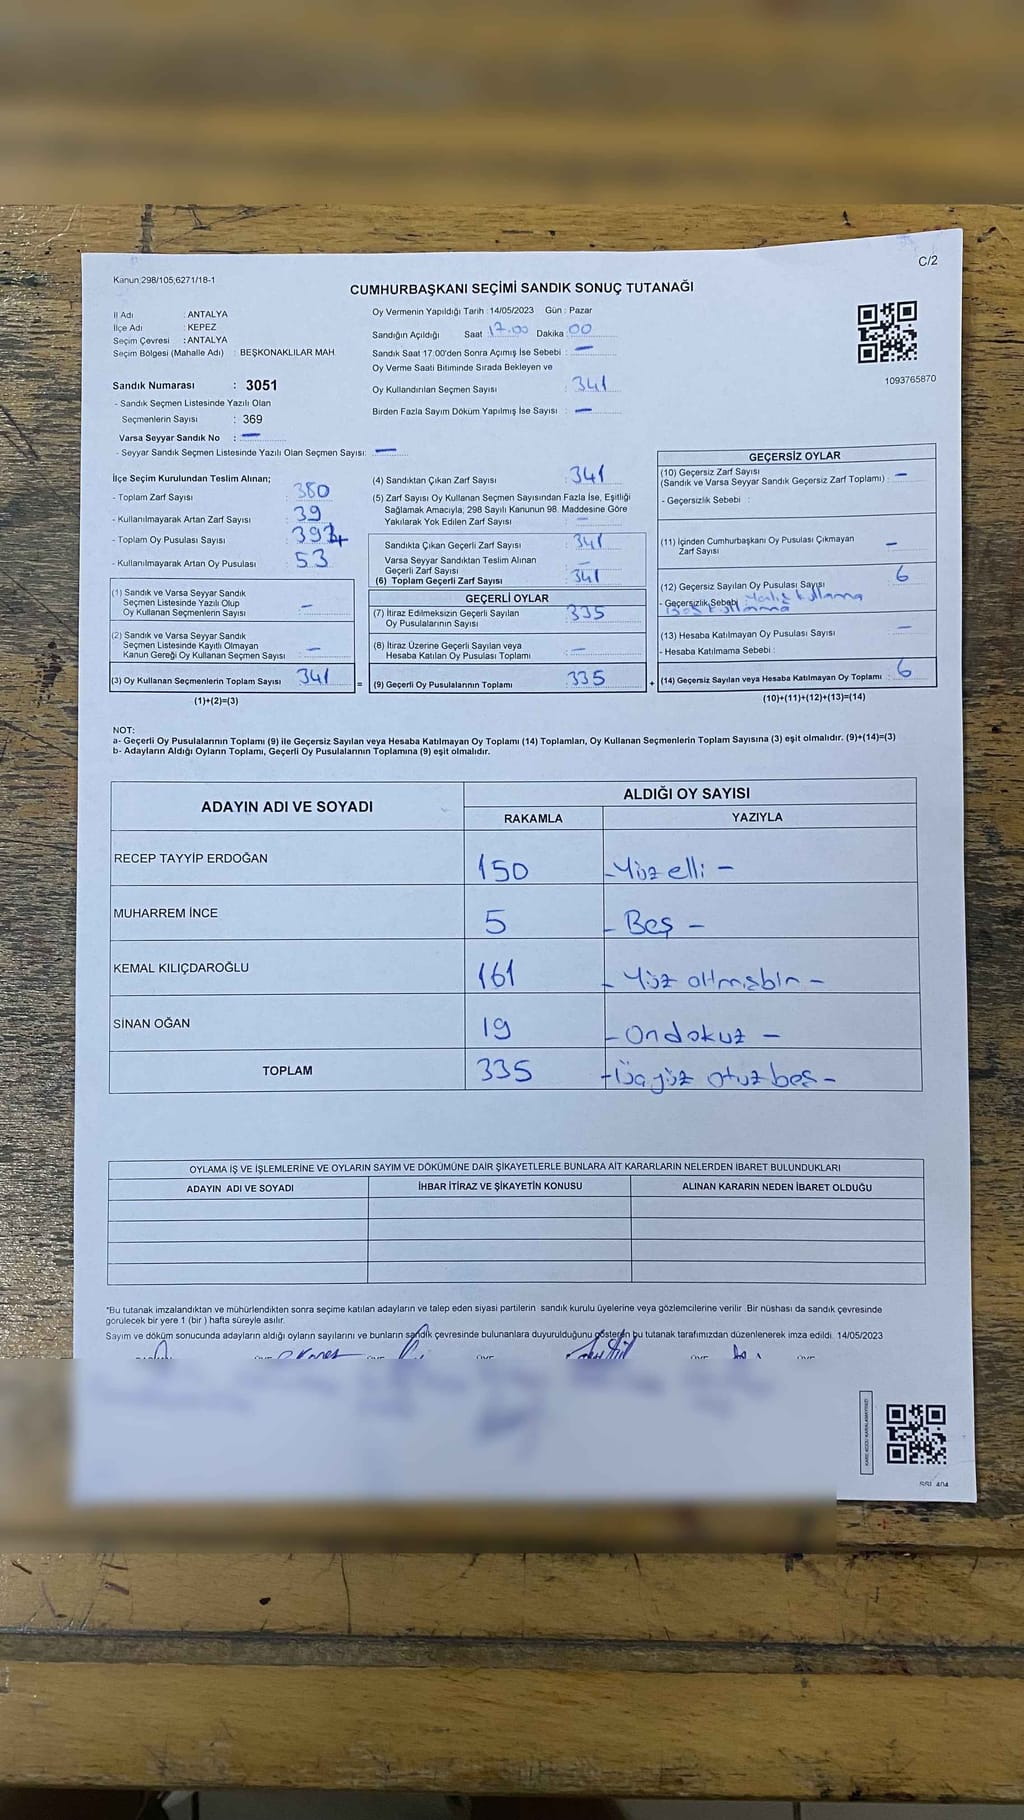 C/2
Kanun,298/105,6271/18-1
CUMHURBAŞKANI SEÇİMİ SANDIK SONUÇ TUTANAĞI
İl Adı : ANTALYA
İlçe Adı : KEPEZ
Seçim Çevresi : ANTALYA
Seçim Bölgesi (Mahalle Adı) : BEŞKONAKLILAR MAH.
Sandık Numarası : 3051
- Sandık Seçmen Listesinde Yazılı Olan
Seçmenlerin Sayısı : 369
Varsa Seyyar Sandık No : —
- Seyyar Sandık Seçmen Listesinde Yazılı Olan Seçmen Sayısı: —
Oy Vermenin Yapıldığı Tarih : 14/05/2023 Gün : Pazar
Sandığın Açıldığı Saat 17.00 Dakika 00
Sandık Saat 17:00'den Sonra Açımış İse Sebebi : —
Oy Verme Saati Bitiminde Sırada Bekleyen ve
Oy Kullandırılan Seçmen Sayısı : 341
Birden Fazla Sayım Döküm Yapılmış İse Sayısı : —
1093765870
İlçe Seçim Kurulundan Teslim Alınan;
- Toplam Zarf Sayısı : 380
- Kullanılmayarak Artan Zarf Sayısı : 39
- Toplam Oy Pusulası Sayısı :
- Kullanılmayarak Artan Oy Pusulası : 53
(1) Sandık ve Varsa Seyyar Sandık
Seçmen Listesinde Yazılı Olup
Oy Kullanan Seçmenlerin Sayısı : —
(2) Sandık ve Varsa Seyyar Sandık
Seçmen Listesinde Kayıtlı Olmayan
Kanun Gereği Oy Kullanan Seçmen Sayısı : —
(3) Oy Kullanan Seçmenlerin Toplam Sayısı : 341
(1)+(2)=(3)
(4) Sandıktan Çıkan Zarf Sayısı : 341
(5) Zarf Sayısı Oy Kullanan Seçmen Sayısından Fazla İse, Eşitliği
Sağlamak Amacıyla, 298 Sayılı Kanunun 98. Maddesine Göre
Yakılarak Yok Edilen Zarf Sayısı : —
Sandıkta Çıkan Geçerli Zarf Sayısı : 341
Varsa Seyyar Sandıktan Teslim Alınan
Geçerli Zarf Sayısı : —
(6) Toplam Geçerli Zarf Sayısı : 341
GEÇERLİ OYLAR
(7) İtiraz Edilmeksizin Geçerli Sayılan
Oy Pusulalarının Sayısı : 335
(8) İtiraz Üzerine Geçerli Sayılan veya
Hesaba Katılan Oy Pusulası Toplamı : —
= (9) Geçerli Oy Pusulalarının Toplamı : 335
GEÇERSİZ OYLAR
(10) Geçersiz Zarf Sayısı
(Sandık ve Varsa Seyyar Sandık Geçersiz Zarf Toplamı) : —
- Geçersizlik Sebebi :
(11) İçinden Cumhurbaşkanı Oy Pusulası Çıkmayan
Zarf Sayısı : —
(12) Geçersiz Sayılan Oy Pusulası Sayısı : 6
- Geçersizlik Sebebi
(13) Hesaba Katılmayan Oy Pusulası Sayısı : —
- Hesaba Katılmama Sebebi :
+ (14) Geçersiz Sayılan veya Hesaba Katılmayan Oy Toplamı : 6
(10)+(11)+(12)+(13)=(14)
NOT:
a- Geçerli Oy Pusulalarının Toplamı (9) ile Geçersiz Sayılan veya Hesaba Katılmayan Oy Toplamı (14) Toplamları, Oy Kullanan Seçmenlerin Toplam Sayısına (3) eşit olmalıdır. (9)+(14)=(3)
b- Adayların Aldığı Oyların Toplamı, Geçerli Oy Pusulalarının Toplamına (9) eşit olmalıdır.
ADAYIN ADI VE SOYADI ALDIĞI OY SAYISI
RAKAMLA YAZIYLA
RECEP TAYYİP ERDOĞAN 150 - Yüz elli -
MUHARREM İNCE 5 - Beş -
KEMAL KILIÇDAROĞLU 161 - Yüz altmışbir -
SİNAN OĞAN 19 - Ondokuz -
TOPLAM 335 - Üçyüz otuzbeş -
OYLAMA İŞ VE İŞLEMLERİNE VE OYLARIN SAYIM VE DÖKÜMÜNE DAİR ŞİKAYETLERLE BUNLARA AİT KARARLARIN NELERDEN İBARET BULUNDUKLARI
ADAYIN ADI VE SOYADI İHBAR İTİRAZ VE ŞİKAYETİN KONUSU ALINAN KARARIN NEDEN İBARET OLDUĞU
*Bu tutanak imzalandıktan ve mühürlendikten sonra seçime katılan adayların ve talep eden siyasi partilerin sandık kurulu üyelerine veya gözlemcilerine verilir. Bir nüshası da sandık çevresinde
görülecek bir yere 1 (bir) hafta süreyle asılır.
Sayım ve döküm sonucunda adayların aldığı oyların sayılarını ve bunların sandık çevresinde bulunanlara duyurulduğunu gösteren bu tutanak tarafımızdan düzenlenerek imza edildi. 14/05/2023